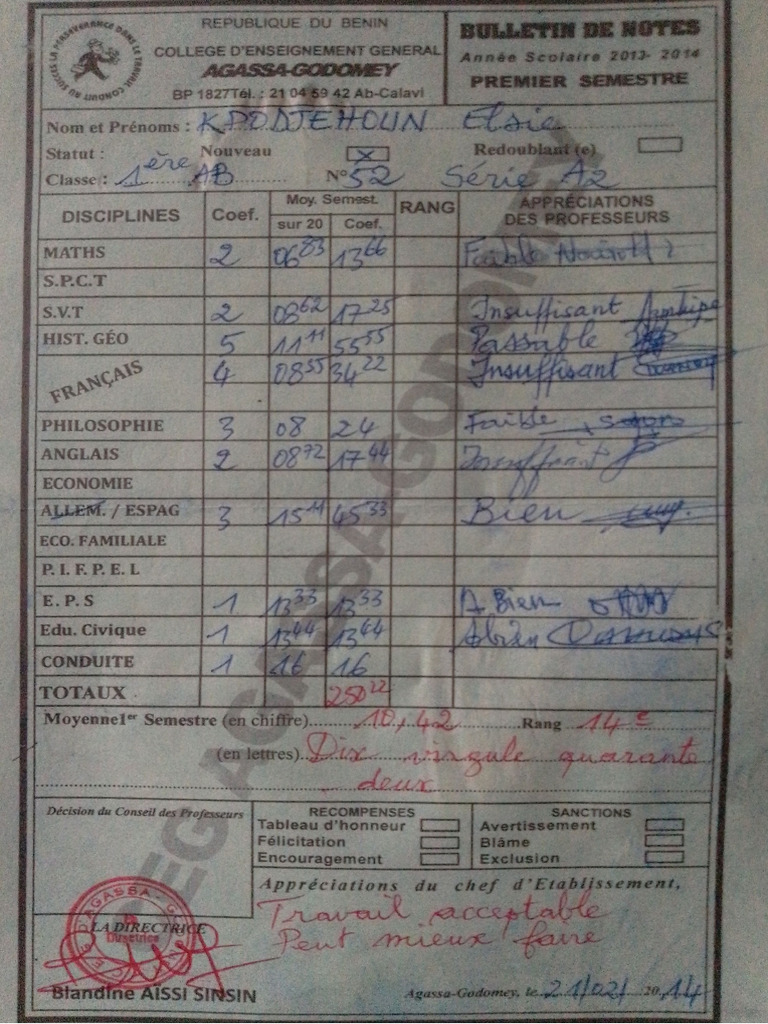 REPUBLIQUE DU BENIN
COLLEGE D'ENSEIGNEMENT GENERAL
AGASSA-GODOMEY
BP 1827Tél.: 21 04 59 42 Ab-Calavi
LA PERSEVERANCE DANS LE TRAVAIL CONDUIT AU SUCCES
BULLETIN DE NOTES
Année Scolaire 2013-2014
PREMIER SEMESTRE
Nom et Prénoms : KPODJEHOUN Elsie
Statut : Nouveau X Redoublant (e)
Classe : 1ère AB N° 52 Série A2
DISCIPLINES Coef. Moy. Semest. RANG APPRÉCIATIONS DES PROFESSEURS
sur 20 Coef.
MATHS 2 06 83 13 66 Faible
S.P.C.T
S.V.T 2 08 62 17 25 Insuffisant
HIST. GÉO 5 11 11 55 55 Passable
FRANÇAIS 4 08 55 34 22 Insuffisant
PHILOSOPHIE 3 08 24 Faible
ANGLAIS 2 08 72 17 44 Insuffisant
ECONOMIE
ALLEM. / ESPAG 3 15 11 45 33 Bien
ECO. FAMILIALE
P. I. F. P. E. L
E. P. S 1 13 33 13 33 A. Bien
Edu. Civique 1 13 44 13 44 A bien
CONDUITE 1 16 16
TOTAUX 250 22
Moyenne1er Semestre (en chiffre) 10,42 Rang 14e
(en lettres) Dix virgule quarante
deux
Décision du Conseil des Professeurs
RECOMPENSES
Tableau d'honneur
Félicitation
Encouragement
SANCTIONS
Avertissement
Blâme
Exclusion
Appréciations du chef d'Etablissement,
Travail acceptable
Peut mieux faire
LA DIRECTRICE
Blandine AISSI SINSIN
Agassa-Godomey, le 21/02/ 2014
CEG AGASSA-GODOMEY